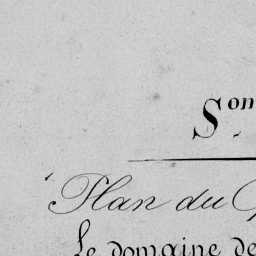 Son
Plan du
Le domaine de